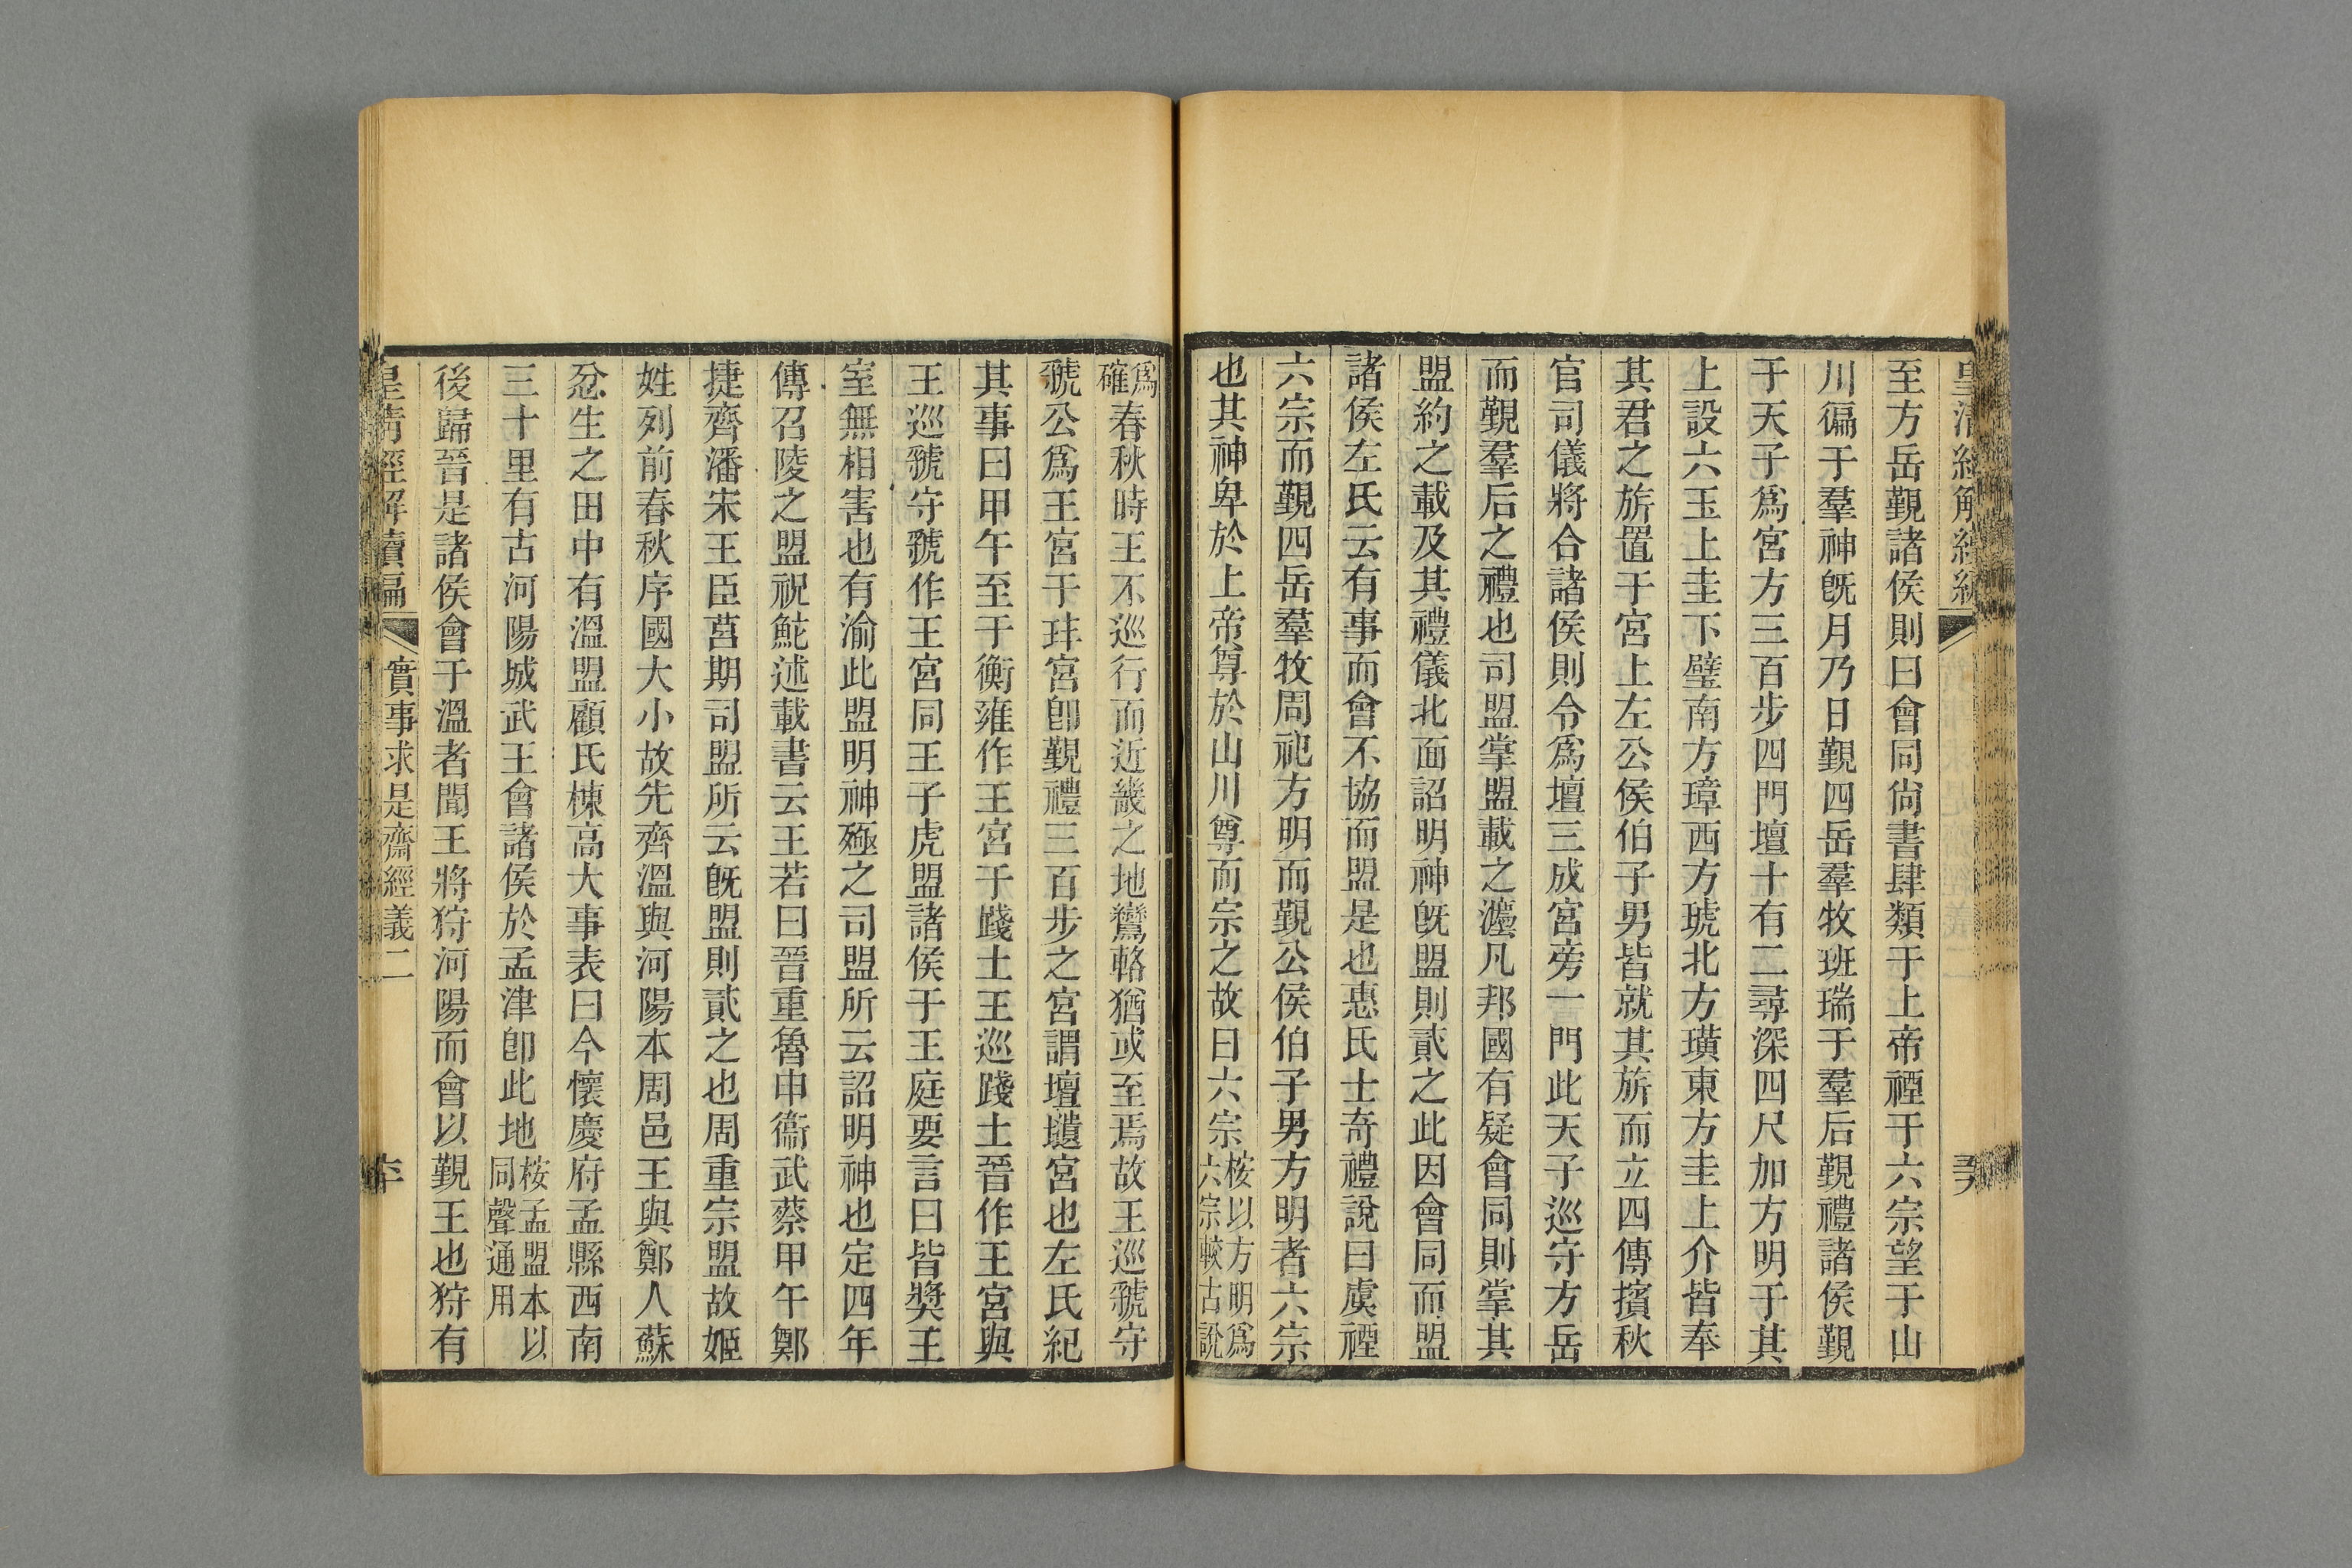 至方岳覲諸侯則曰會同尙書肆類于上帝禋于六宗望于山
川徧于羣神旣月乃日覲四岳羣牧班瑞于羣后覲禮諸侯覲
于天子爲宮方三百步四門壇十有二尋深四尺加方明于其
上設六玉上圭下璧南方璋西方琥北方璜東方圭上介皆奉
其君之旂置于宮上左公侯伯子男皆就其旂而立四傳擯秋
官司儀將合諸侯則令爲壇三成宮旁一門此天子巡守方岳
而覲羣后之禮也司盟掌盟載之灋凡邦國有疑會同則掌其
盟約之載及其禮儀北面詔明神旣盟則貳之此因會同而盟
諸侯左氏云有事而會不協而盟是也惠氏士奇禮說曰虞禋
六宗而覲四岳羣牧周祀方明而覲公侯伯子男方明者六宗
也其神卑於上帝尊於山川尊而宗之故曰六宗桉以方明爲六宗較古說
爲確春秋時王不巡行而近畿之地鸞輅猶或至焉故王巡虢守
虢公爲王宮于玤宮卽覲禮三百步之宮謂壇壝宮也左氏紀
其事曰甲午至于衡雍作王宮于踐土王巡踐土晉作王宮與
王巡虢守虢作王宮同王子虎盟諸侯于王庭要言曰皆獎王
室無相害也有渝此盟明神殛之司盟所云詔明神也定四年
傳召陵之盟祝鮀述載書云王若曰晉重魯申衞武蔡甲午鄭
捷齊潘宋王臣莒期司盟所云旣盟則貳之也周重宗盟故姬
姓列前春秋序國大小故先齊溫與河陽本周邑王與鄭人蘇
忿生之田中有溫盟顧氏棟高大事表曰今懷慶府孟縣西南
三十里有古河陽城武王會諸侯於孟津卽此地桉孟盟本以同聲通用
後歸晉是諸侯會于溫者聞王將狩河陽而會以覲王也狩有
皇清經解續編 實事求是齋經義二